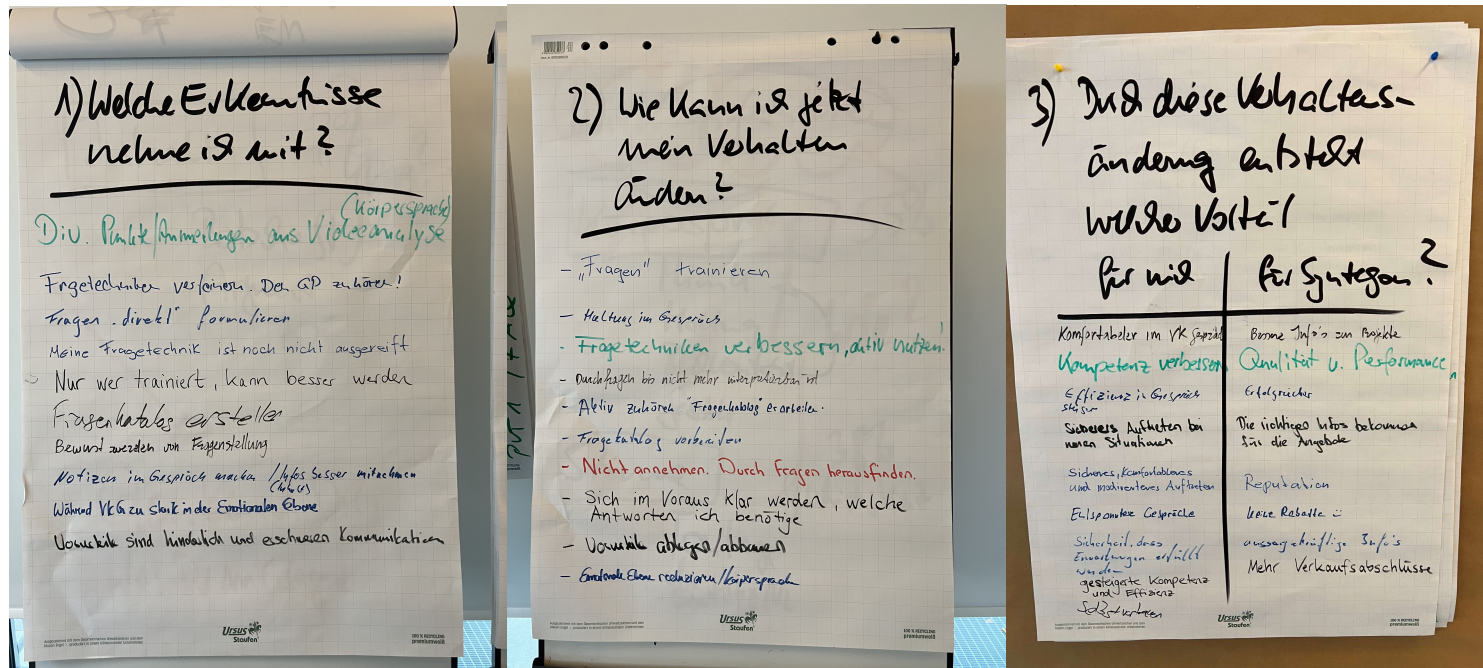 1) Welche Erkenntnisse
nehme ich mit?
(Körpersprache)
Div. Punkte/Anmerkungen aus Videoanalyse
Fragetechniken verfeinern. Den GP zuhören!
Fragen "direkt" formulieren
Meine Fragetechnik ist noch nicht ausgereift
Nur wer trainiert, kann besser werden
Fragenkatalog erstellen
Bewusst werden von Fragenstellung
Notizen im Gespräch machen / Infos besser mitnehmen
Während VKG zu stark in der Emotionalen Ebene
Vorurteile sind hinderlich und erschweren Kommunikation
Ursus
Staufen
100 % RECYCLING
premiumweiß
2) Wie kann ich jetzt
mein Verhalten
ändern?
- "Fragen" trainieren
- Haltung im Gespräch
- Fragetechniken verbessern, aktiv nutzen!
- Durchfragen bis nicht mehr interpretierbar ist
- Aktiv zuhören "Fragenkatalog" erarbeiten.
- Fragekatalog vorbereiten
- Nicht annehmen. Durch Fragen herausfinden.
- Sich im Voraus klar werden, welche
Antworten ich benötige
- Vorurteile ablegen/abbauen
- Emotionale Ebene reduzieren/Körpersprache
Ursus
Staufen
100 % RECYCLING
premiumweiß
3) Durch diese Verhaltens-
änderung entsteht
welcher Vorteil
für mich
für Syntegon?
Komfortabler im VK Gespräch
Kompetenz verbessern
Effizienz im Gespräch
steigern
Sicheres Auftreten bei
neuen Situationen
Sicheres, Komfortableres
und motivierteres Auftreten
Entspanntere Gespräche
Sicherheit, dass
Erwartungen erfüllt
werden
gesteigerte Kompetenz
und Effizienz
Selbstvertrauen
Bessere Info's zum Projekte
Qualität u. Performance
Erfolgreicher
Die richtigen Infos bekommen
für die Angebote
Reputation
keine Rabatte
aussagekräftige Info's
Mehr Verkaufsabschlüsse
Ursus
Staufen
100 % RECYCLING
premiumweiß